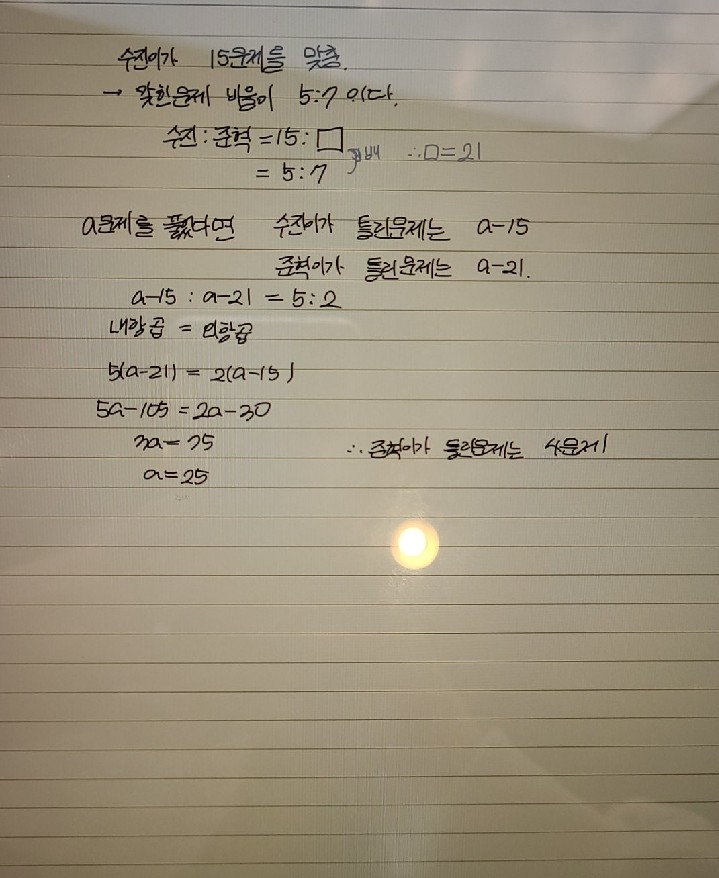 수진이가 15문제를 맞춤.
→ 맞힌문제 비율이 5:7 이다.
수진:준혁 = 15:□
= 5:7 ∴□=21
a문제를 풀었다면 수진이가 틀린문제는 a-15
준혁이가 틀린문제는 a-21.
a-15 : a-21 = 5:2
내항곱 = 외항곱
5(a-21) = 2(a-15)
5a-105 = 2a-30
3a=75
∴ 준혁이가 틀린문제는 4문제
a=25